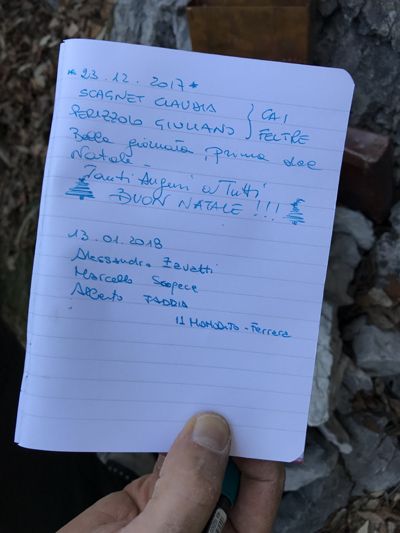 * 23.12.2017 *
SCAGNET CLAUDIA
PERIZZOLO GIULIANO } CAI FELTRE
Bella giornata, prima del
Natale -
Tanti Auguri a Tutti
BUON NATALE !!!
13.01.2018
Alessandro Zavatti
Marcello Scopece
Alberto TADDIA
- Ferrara